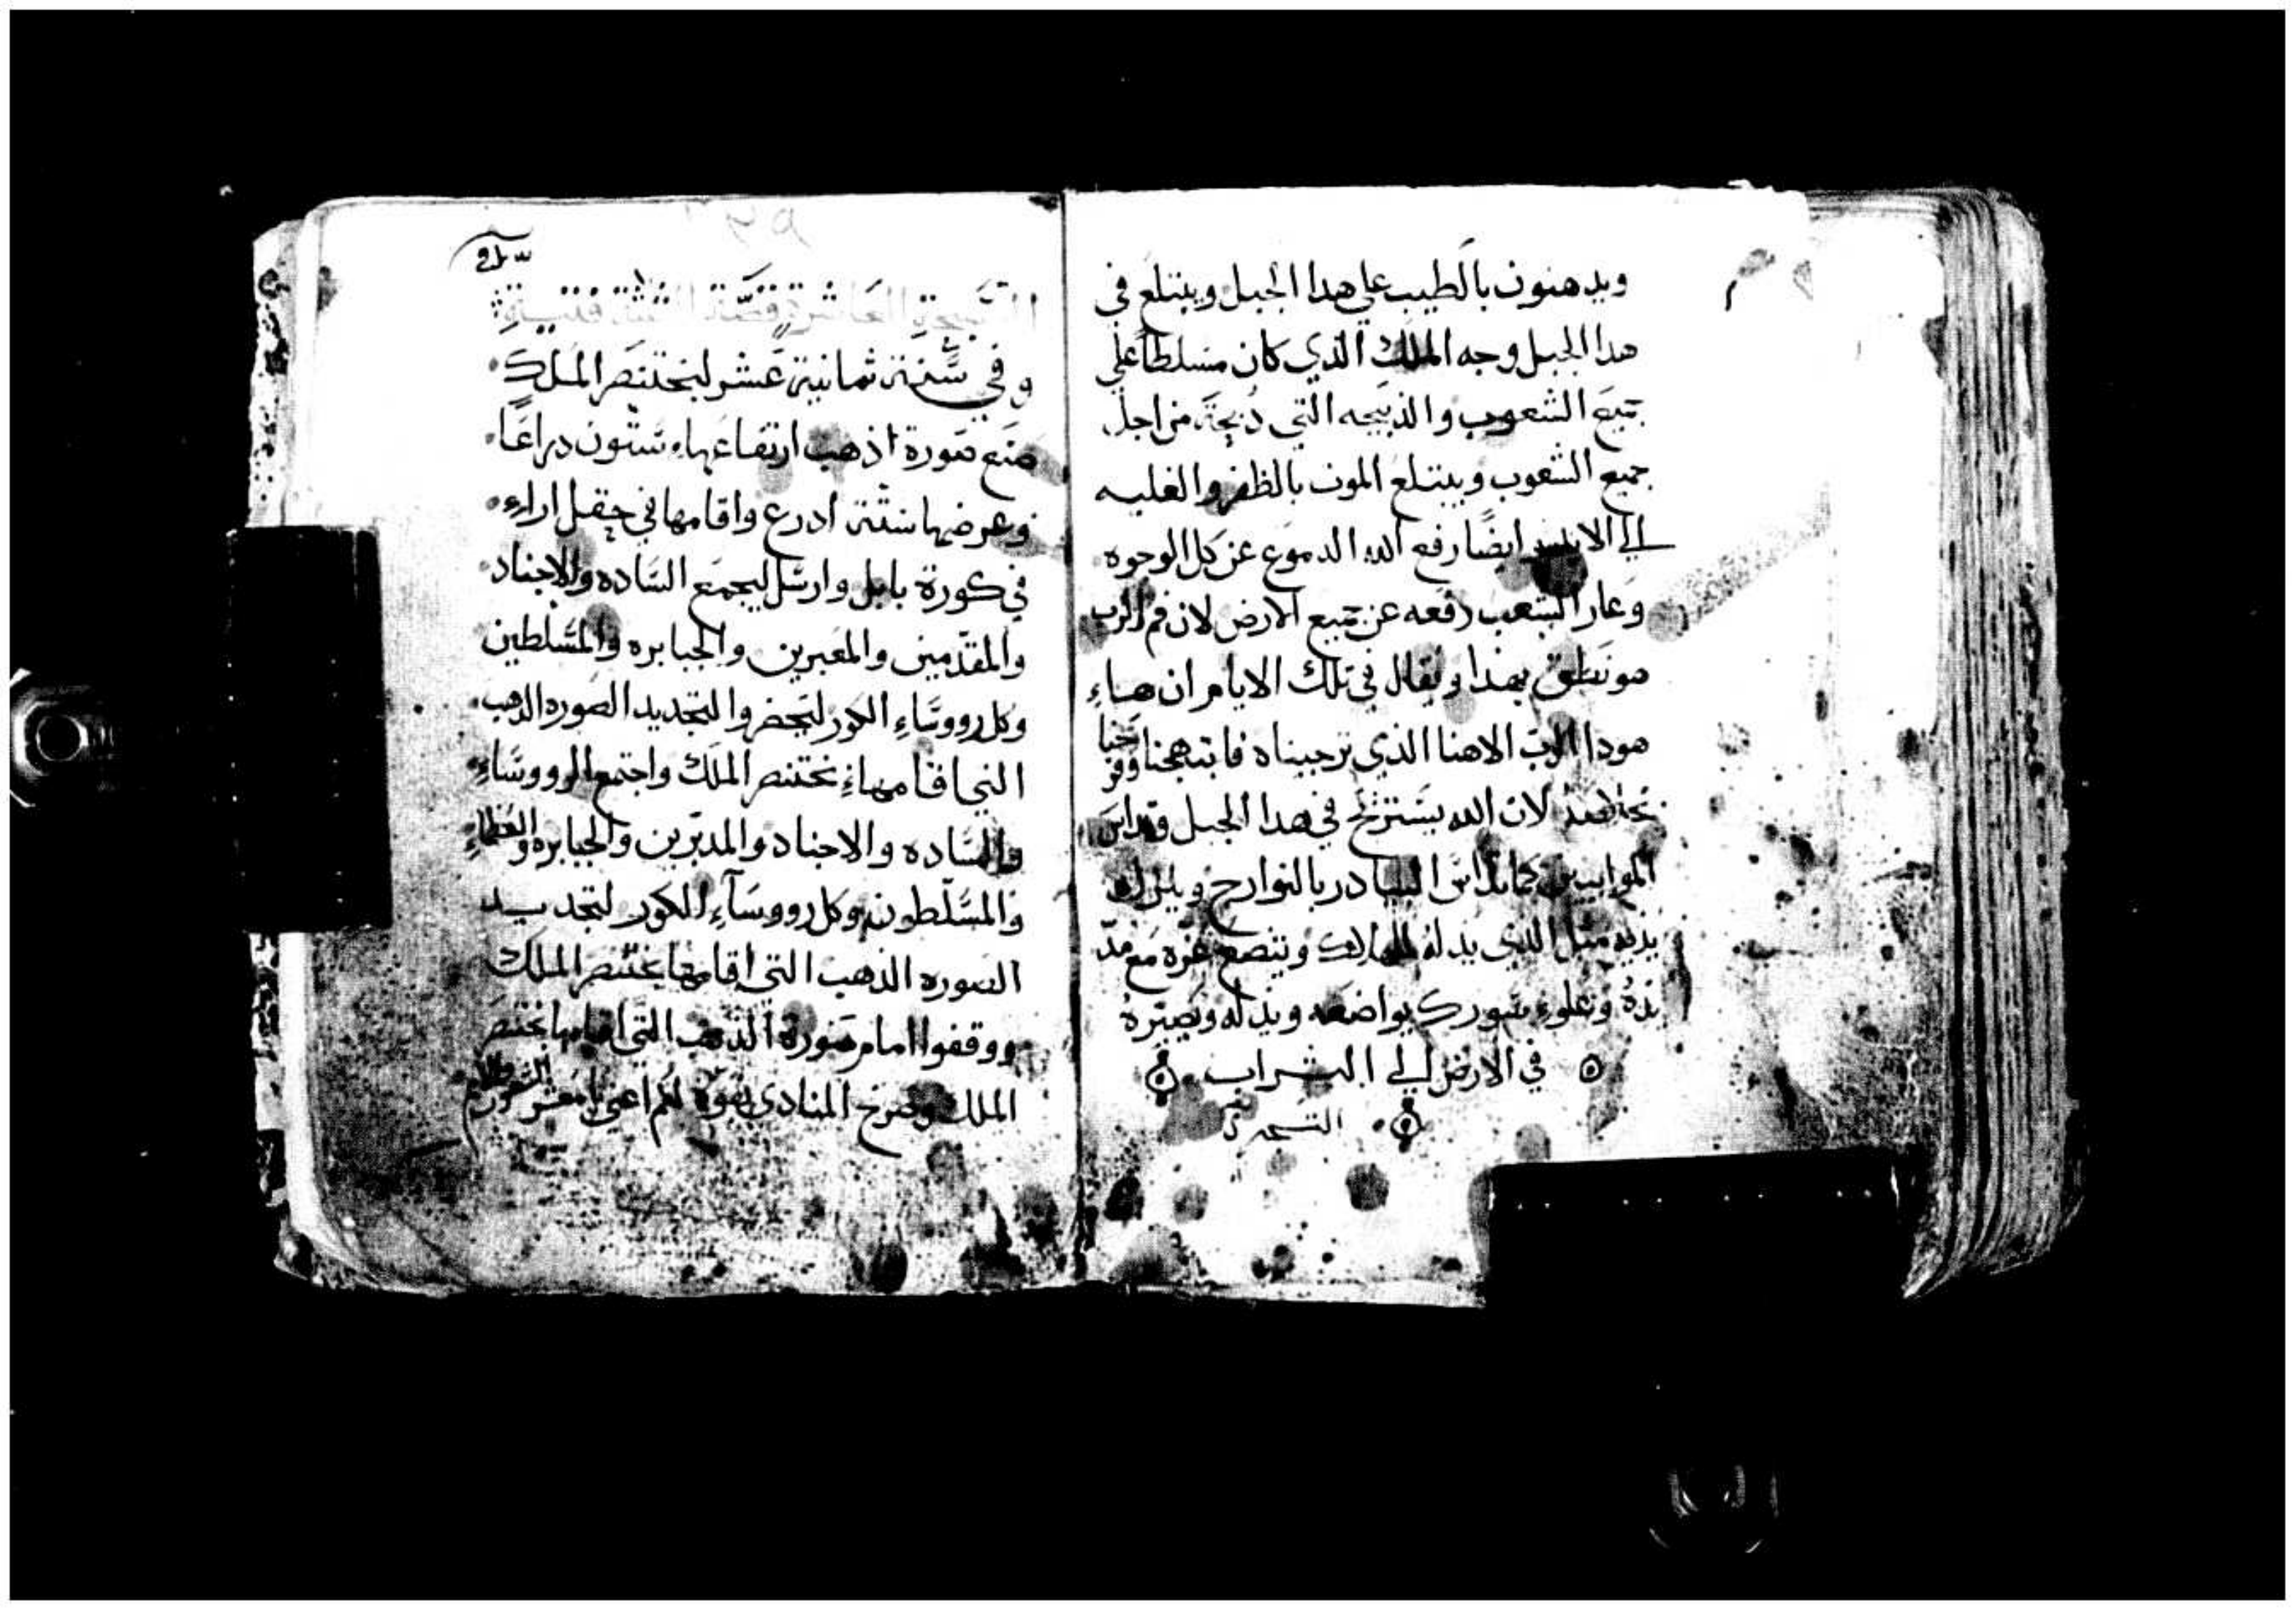 ويدهنون بالطيب علي هدا الجبل ويبتلع في
هدا الجبل وجه الملك الذي كان مسلطاً علي
جميع الشعوب والذبيحه التي دُبحَة من اجل
جميع الشعوب ويبتلع الموت بالظفر والغلبه
الي الابد ايضًا رفع الله الدموع عن كل الوجوه
وعار الشعب رفعه عن جميع الارض لان فم الرب
هو نطق بهدا ويقال في تلك الايام ان هاء
هودا الرب الاهنا الذي ترجيناه فابتهجنا وفرحنا
بخلاصه لان الله يستريح في هدا الجبل وتداس
الموابيين كما تداس البيادر بالنوارج
يديه مثل الذي يدله ويتضع عزه مع مد
يده وعلوء سورك يواضعه ويدله ويصيره
في الارض الي التراب
التسبحه
التسبحة العاشرة قصَّة الثلثة فتية
وفي سَّنة ثمانية عَشر لبختنصر الملك
صنع صورة ذهب ارتفاعها ستون دراعًا
وعرضها ستة ادرع واقامها في حقل اراء
في كورة بابل وارسل ليجمع السَّاده والاجناد
والمقدّمين والمعبرين والجبابره والمسَّلطين
وكل رووسَاء الكور ليحضروا لتجديد الصوره الدهب
التي اقامها بختنصر الملك واجتمع الرووسَاء
والسَّاده والاجناد والمدبّرين والجبابره والعظماء
والمسَلّطون وكل رووسَآء الكور لتجديد
الصوره الذهب التي اقامها بختنصر الملك
ووقفوا امام صورة الذهب التي اقامها بختنصر
الملك وصرخ المنادي بقوة لكم اعني يا معشر